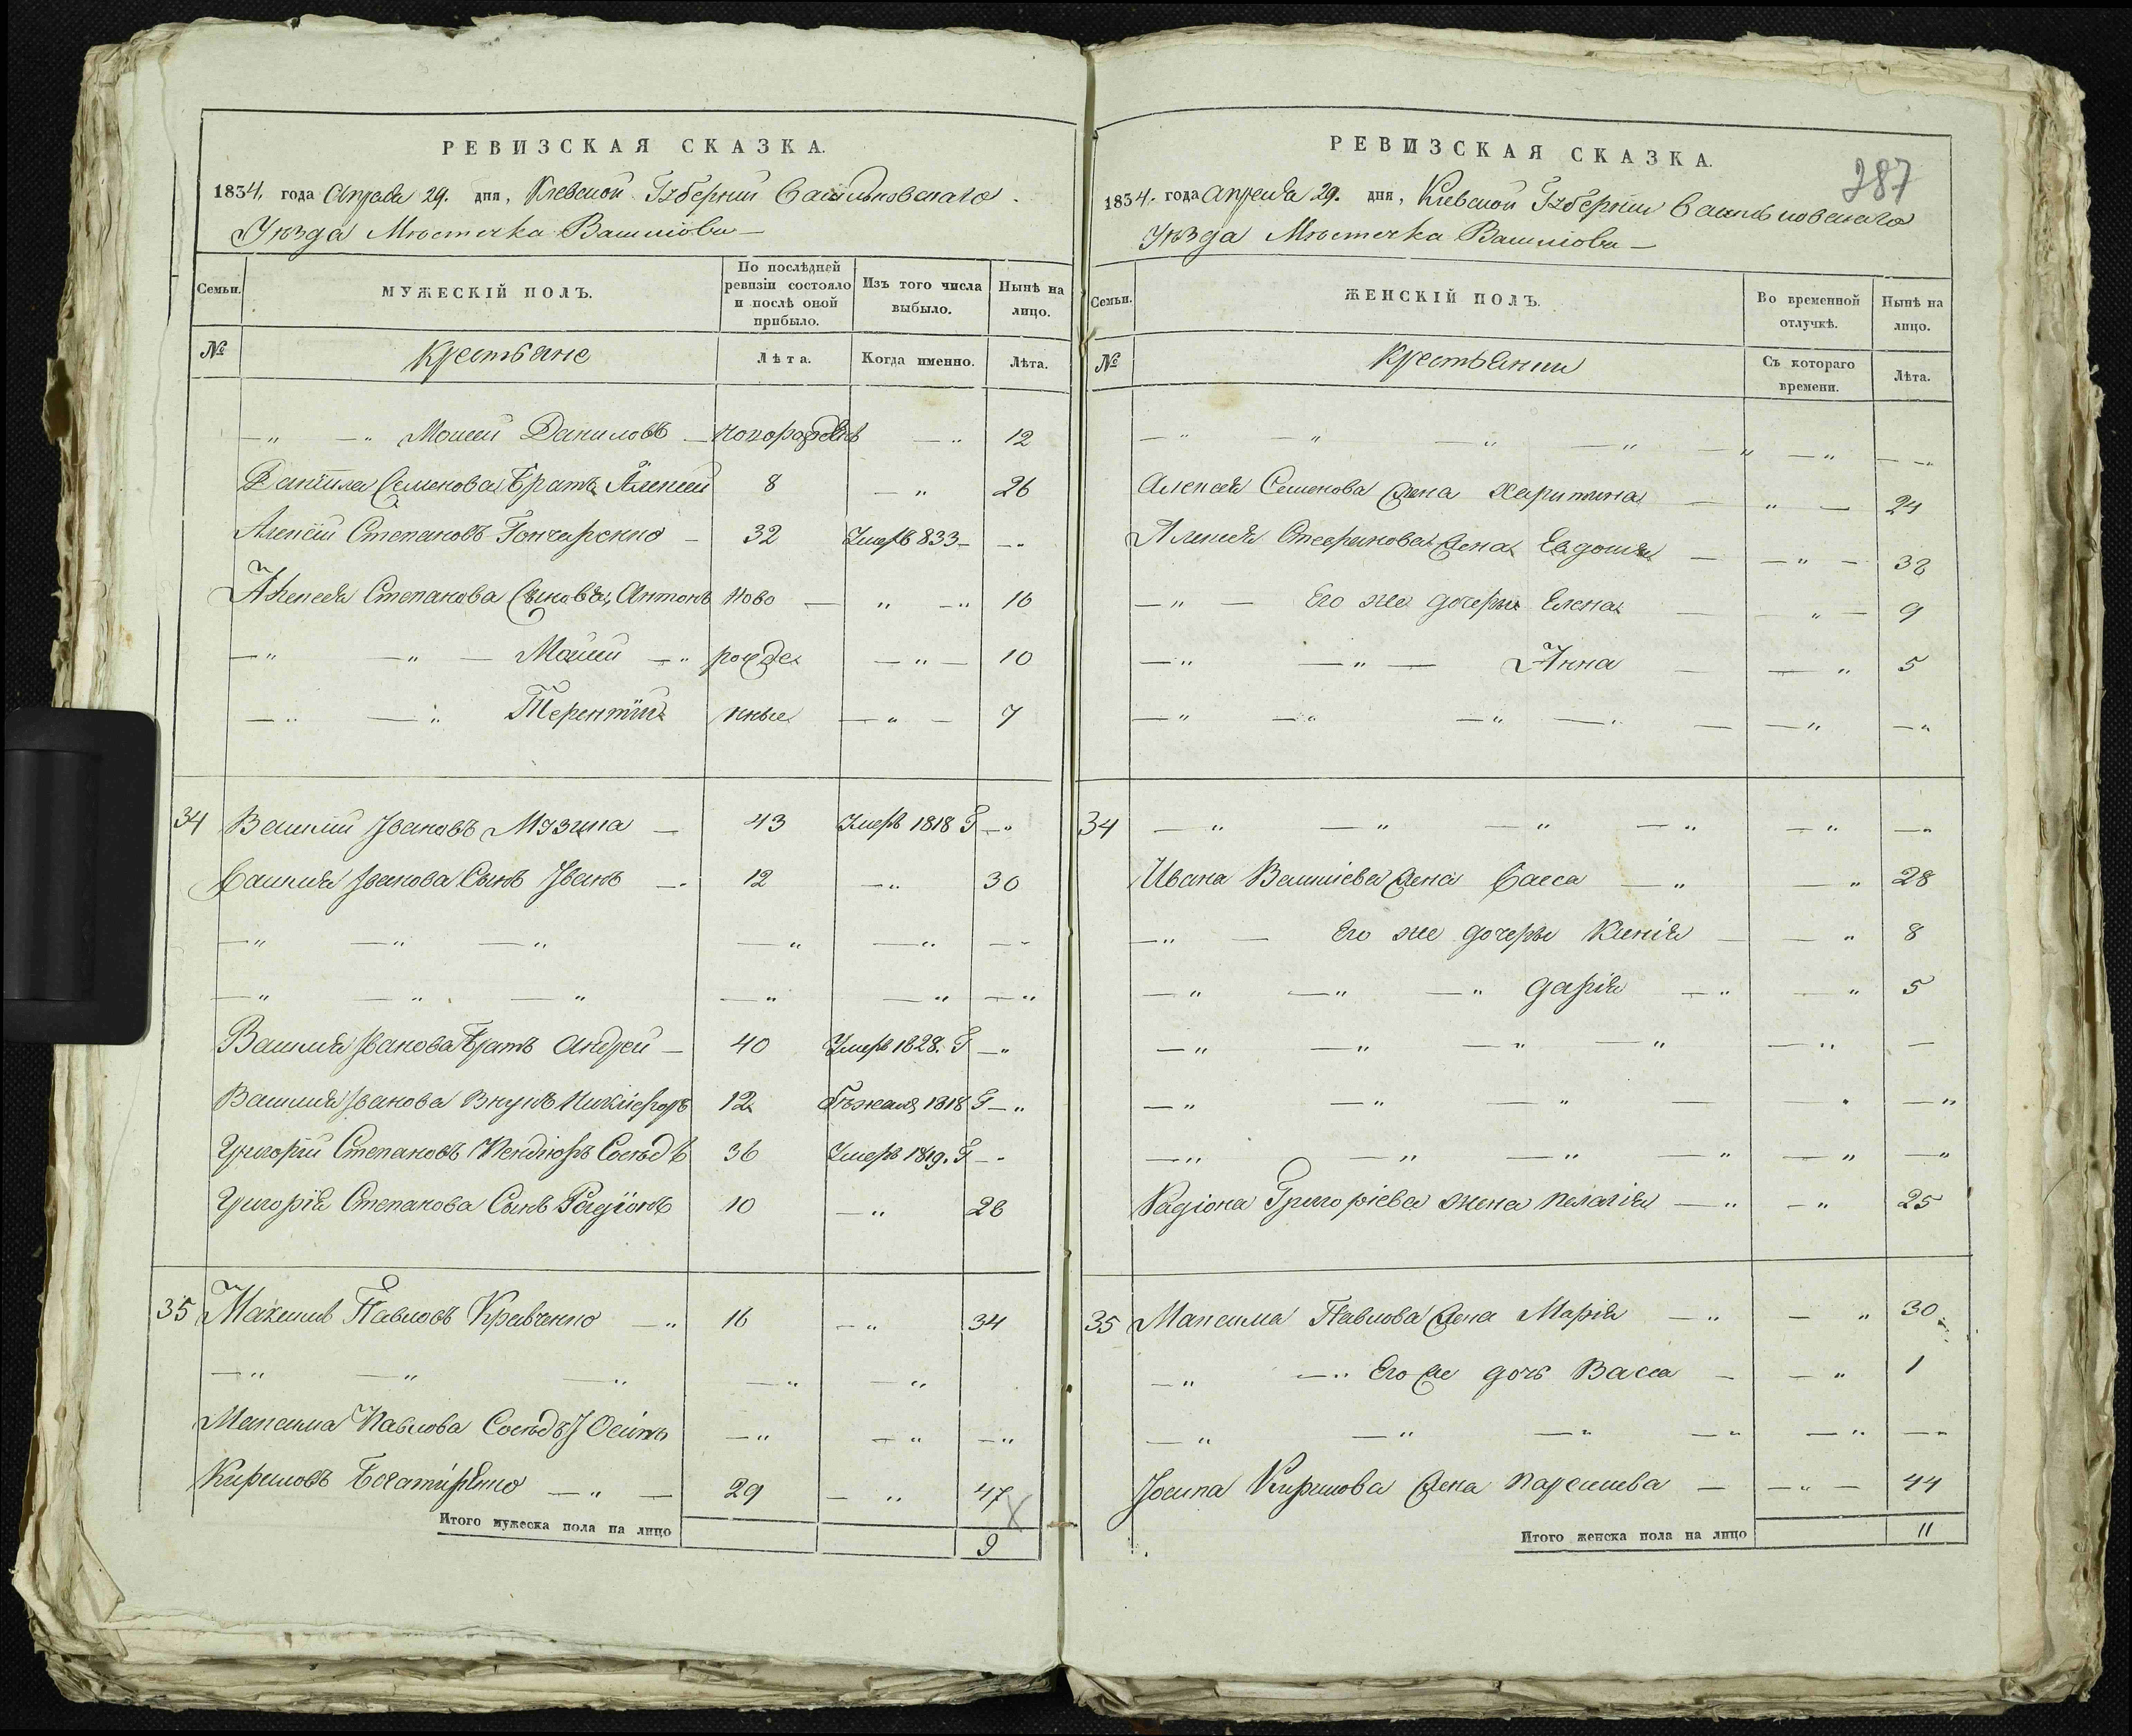 РЕВИЗСКАЯ СКАЗКА.
1834. года Апреля 29. дня, Киевской Губернии Васильковскаго
Уѣзда Мѣстечка Василіова
Семьи.
МУЖЕСКІЙ ПОЛЪ.
По послѣдней ревизіи состояло и послѣ оной прибыло.
Изъ того числа выбыло.
Нынѣ на лицо.
№
Крестьяне
Лѣта.
Когда именно.
Лѣта.
— " — " Мосей Даниловъ — новорожден — " 12
Даніила Семенова Братъ Алексей 8 — " 26
Алексій Степановъ Гончаренко — 32 Умеръ 833 — — "
Алексея Степанова Сыновья, Антонъ ново — " — " 16
— " — " — Мосей — " рожде — " — 10
— " — " Терентій нные — " — 7
34 Василій Ивановъ Музыка — 43 Умеръ 1818 Г — "
Василия Иванова Сынъ Иванъ — " 12 — " 30
— " — " — " — " — " — "
— " — " — " — " " — "
Василия Иванова Братъ Андрей — 40 Умеръ 1828. Г — "
Василия Иванова Внукъ Никифоръ 12 Бѣжалъ 1818 Г — "
Григорій Степановъ Кендюръ Сосѣдъ 36 Умеръ 1819. Г — "
Григорія Степанова Сынъ Радіонъ 10 — " 26
35 Максимъ Павловъ Кравченко — " 16 — " 34
— " — " — " — " — "
Максима Павлова Сосѣдъ Іосипъ — " — " — "
Кириловъ Богатиренко — " — 29 — " 47
Итого мужеска пола на лицо 9
РЕВИЗСКАЯ СКАЗКА.
287
1834. года Апреля 29. дня, Киевской Губерніи Васильковскаго
Уѣзда Мѣстечка Василіова —
Семьи.
ЖЕНСКІЙ ПОЛЪ.
Во временной отлучкѣ.
Нынѣ на лицо.
№
Крестьянки
Съ котораго времени.
Лѣта.
— " — " — " — " — " — " — "
Алексея Семенова жена Харитина — " — 24
Алексея Степанова жена Евдокия — — " — 32
— " — Его же дочеры Елена — — " — 9
— " — " — Анна — — " 5
— " — " — " — " — — " — "
34 — " — " — " — " — " — "
Ивана Василіева жена Васса — " — " 28
— " — Его же дочеры Ксенія — — " 8
— " — " — " Дарія — " — " 5
— " — " — " — " — " —
— " — " — " — — " — "
— " — " — " — " — " — "
Радіона Григоріева жена Пелагія — " — " 25
35 Максима Павлова жена Марія — " — " 30
— " — " Его же дочь Васса — — " 1
— " — " — " — " — " — "
Іосипа Кирилова жена Параскева — — " — 44
Итого женска пола на лицо 11